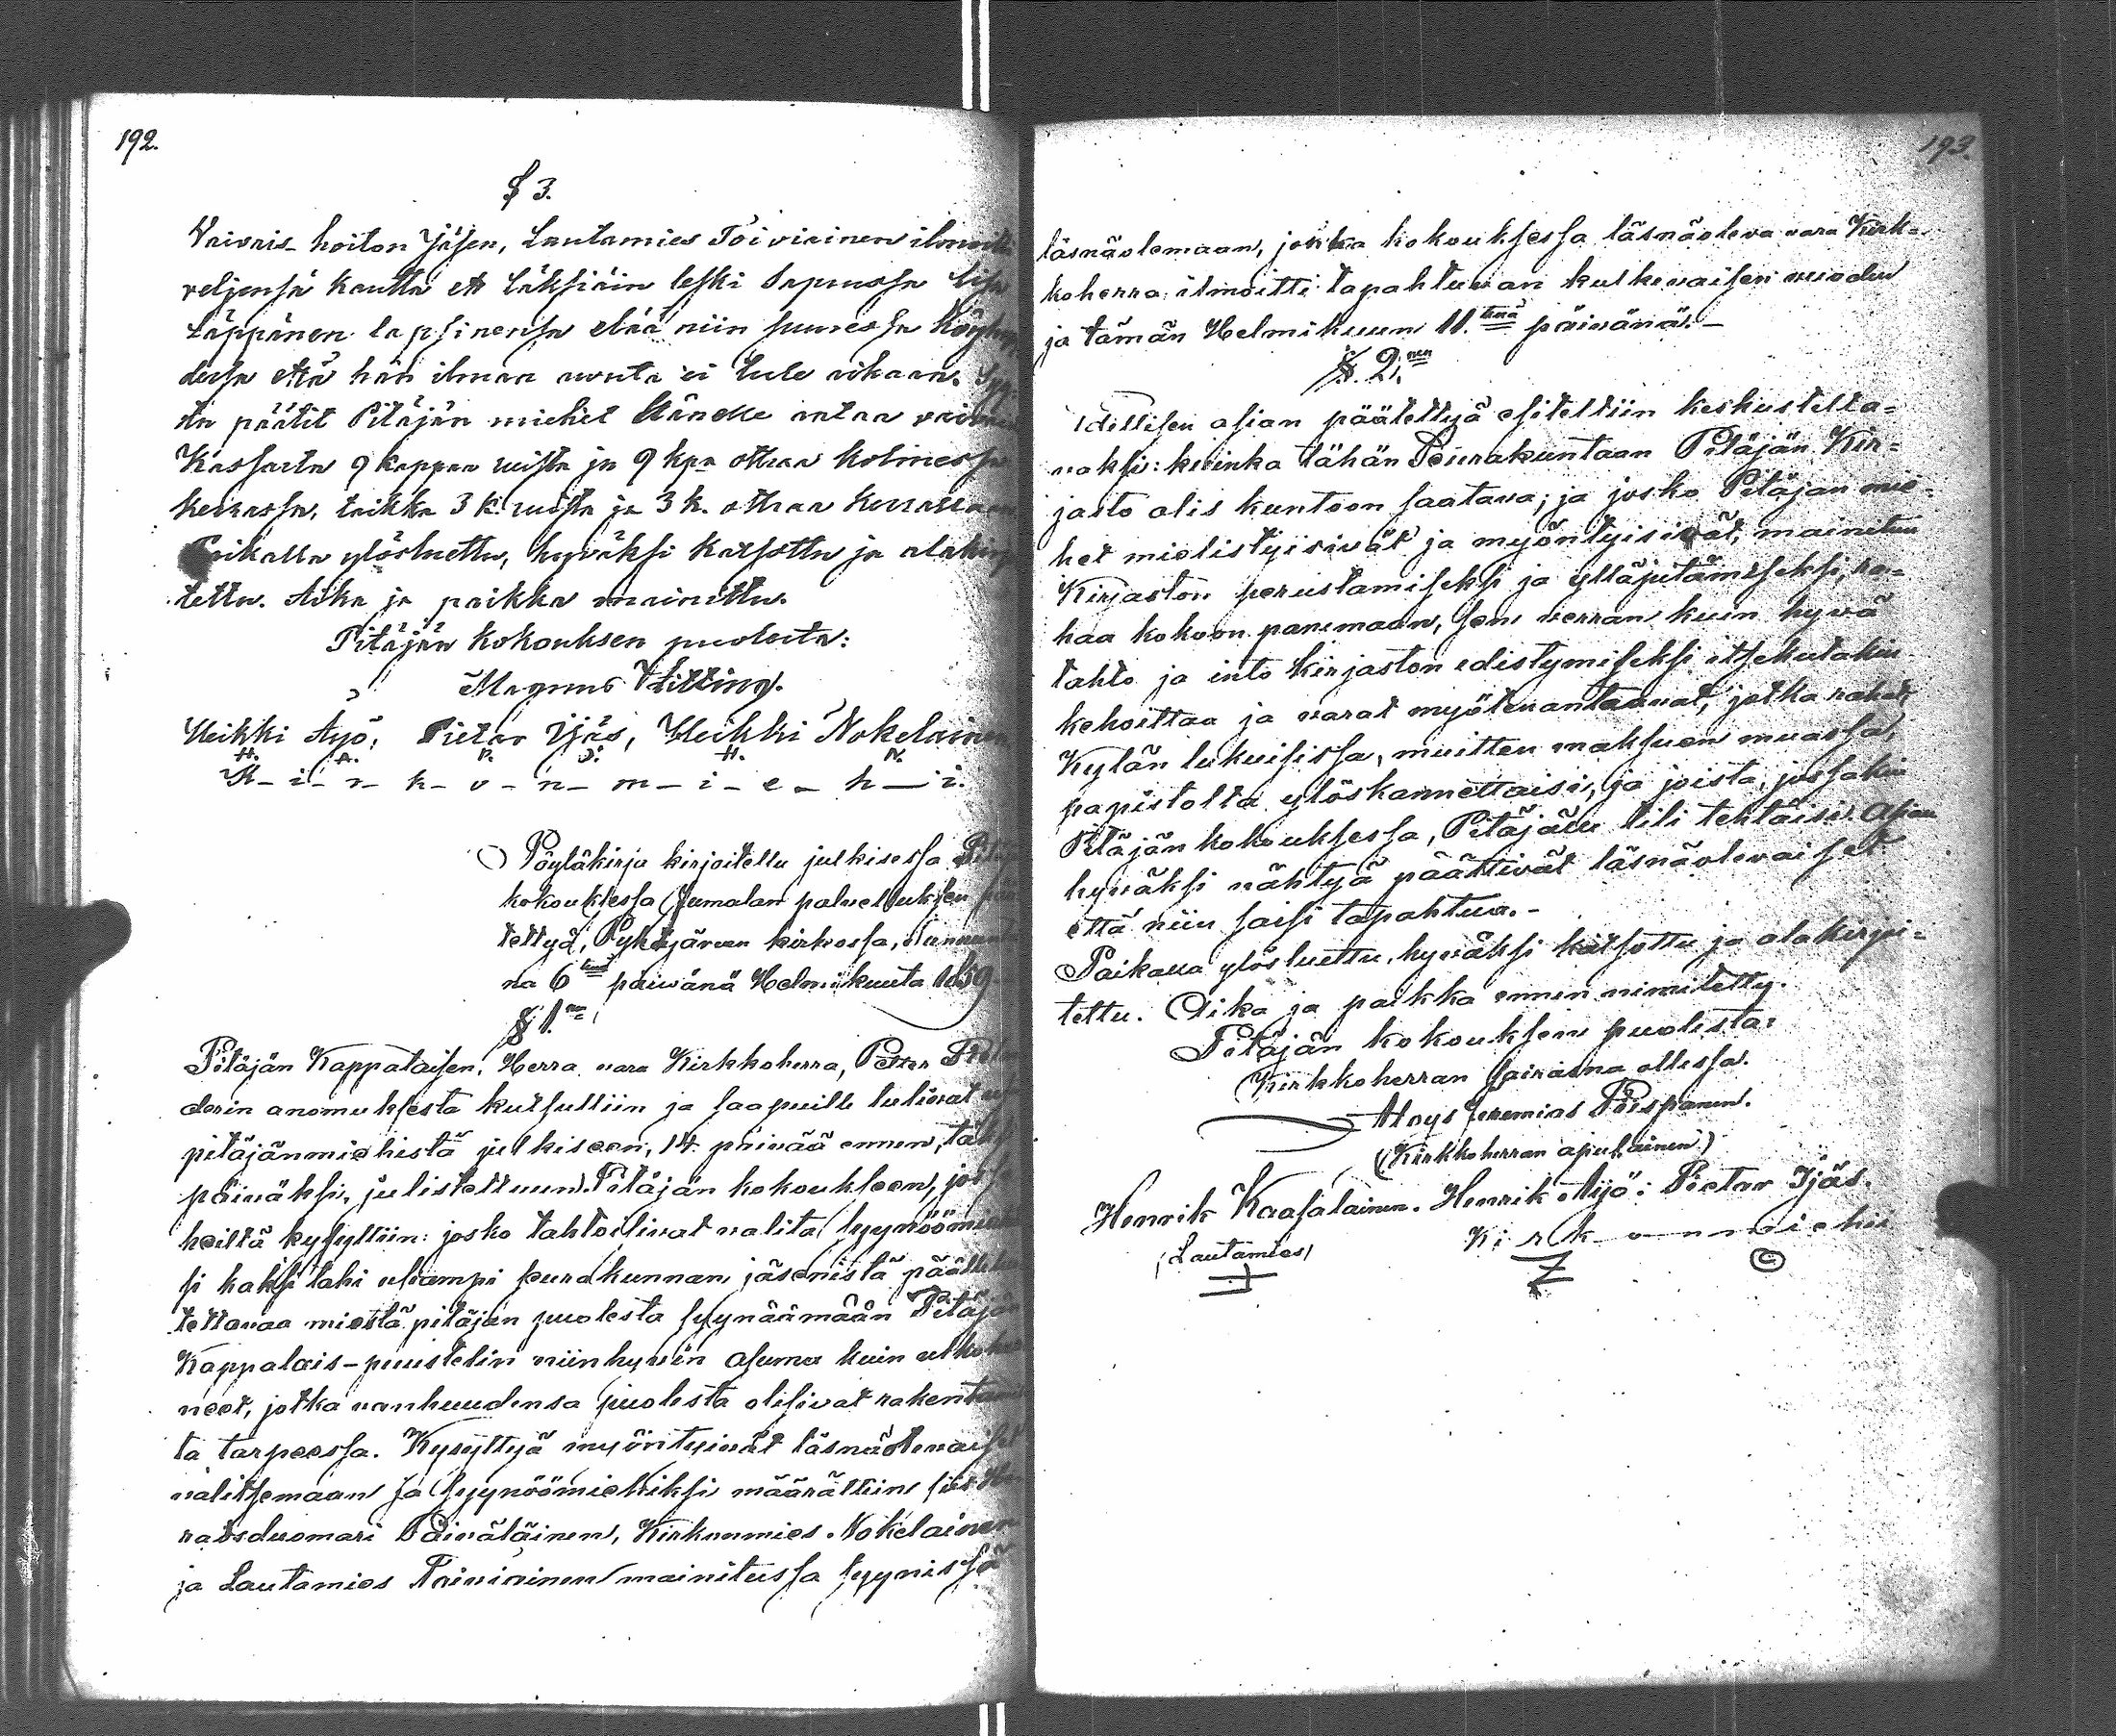 192.
§ 3.
Vaivais hoiton Jäsen, Lautamies Toiviainen ilmoitti
veljensä kautta ett Läksiäin leski Sapurssa Lisa
Läppänen lapsinensa elää niin suuressa Köyhyy
dessa että hän ilman avuta ei tule aikaan.
ta päätit Pitäjän miehet Hänelle antaa vaivais
Kassasta 9 kappaa ruista ja 9 kpa ottraa Kolmessa
kerrassa, taikka 3 k. ruista ja 3 k. ottraa kerrallaan
Paikalla ylösluettu, hyväksi katsottu ja alakirjoi
tettu. Aika ja paikka mainittu.
Pitäjän kokouksen puolesta:
Magnus Alitting.
Heikki Äyö, Pietar Ijäs, Heikki Nokelainen
H. A. P. J. H. N.
K-i-r-k-o-n-m-i-e-h-i.
Pöytäkirja kirjoitettu julkisessa Pitä
kokouksessa Jumalan palveluksen pää
tettyä, Pyhäjärven kirkossa, Sunnunta
na 6 tena päivänä Helmikuuta 1859.
§ 1. nen
Pitäjän Kappalaisen, Herra vara Kirkkoherra, Petter
derin anomuksesta kutsuttiin ja saapuille tulivat
pitäjänmiehistä julkiseen, 14 päivää ennen, täksi
päiväksi, julistettuun Pitäjän kokoukseen, jossa
heiltä kysyttiin: josko tahtoisivat valita syynöömiehik
si kaksi tahi useampi seurakunnan jäsenistä päällikö
tettavaa miestä pitäjän puolesta syynäämään Pitäjän
Kappalais-puustelin niinhyvin asuma kuin ulkohuo
neet, jotka vanhuudensa puolesta olisivat rakentami
ta tarpeessa. Kysyttyä myöntyivät läsnäolevaiset
valitsemaan ja syynöömiehiksi määrättiin siis He
radsduomari Päiväläinen, Kirkonmies Nokelainen
ja Lautamies Toiviainen mainitussa syynissä
193.
läsnäolemaan, jonka kokouksessa läsnäoleva vara Kirk-
koherra ilmoitti tapahtuvan kulkevaisen vuoden
ja tämän Helmikuun 11. tenä päivänä. -
§. 2. nen
Edellisen asian päätettyä esiteltiin keskustelta-
vaksi: kuinka tähän Seurakuntaan Pitäjän Kir-
jasto olis kuntoon saatava; ja josko Pitäjän mie-
het mielistyisivät ja myöntyisivät, mainitun
Kirjaston perustamiseksi ja ylläpitämiseksi, ra-
haa kokoon panemaan, sen verran kuin hyvä
tahto ja into kirjaston edistymiseksi itsekutakin
kehoittaa ja varat myötenantaavat, jotka rahat
Kylän lukuisissa, muitten maksuen muassa,
papistolta ylöskannettaisi, ja joista, jossakin
Pitäjän kokouksessa, Pitäjälle tili tehtäisi. Asian
hyväksi nähtyä päättivät läsnäolevaiset
että niin saisi tapahtua. -
Paikalla ylösluettu, hyväksi katsottu ja alakirjoi-
tettu. Aika ja paikka ennen nimitetty.
Pitäjän kokouksen puolesta:
Kirkkoherran sairasna ollessa.
Aloys Jeremias Poispanen.
(Kirkkoherran apulainen)
Henrik Kaasalainen. Henrik Äyö: Pietar Ijäs.
(Lautamies) K i r k o n m i e h i ä